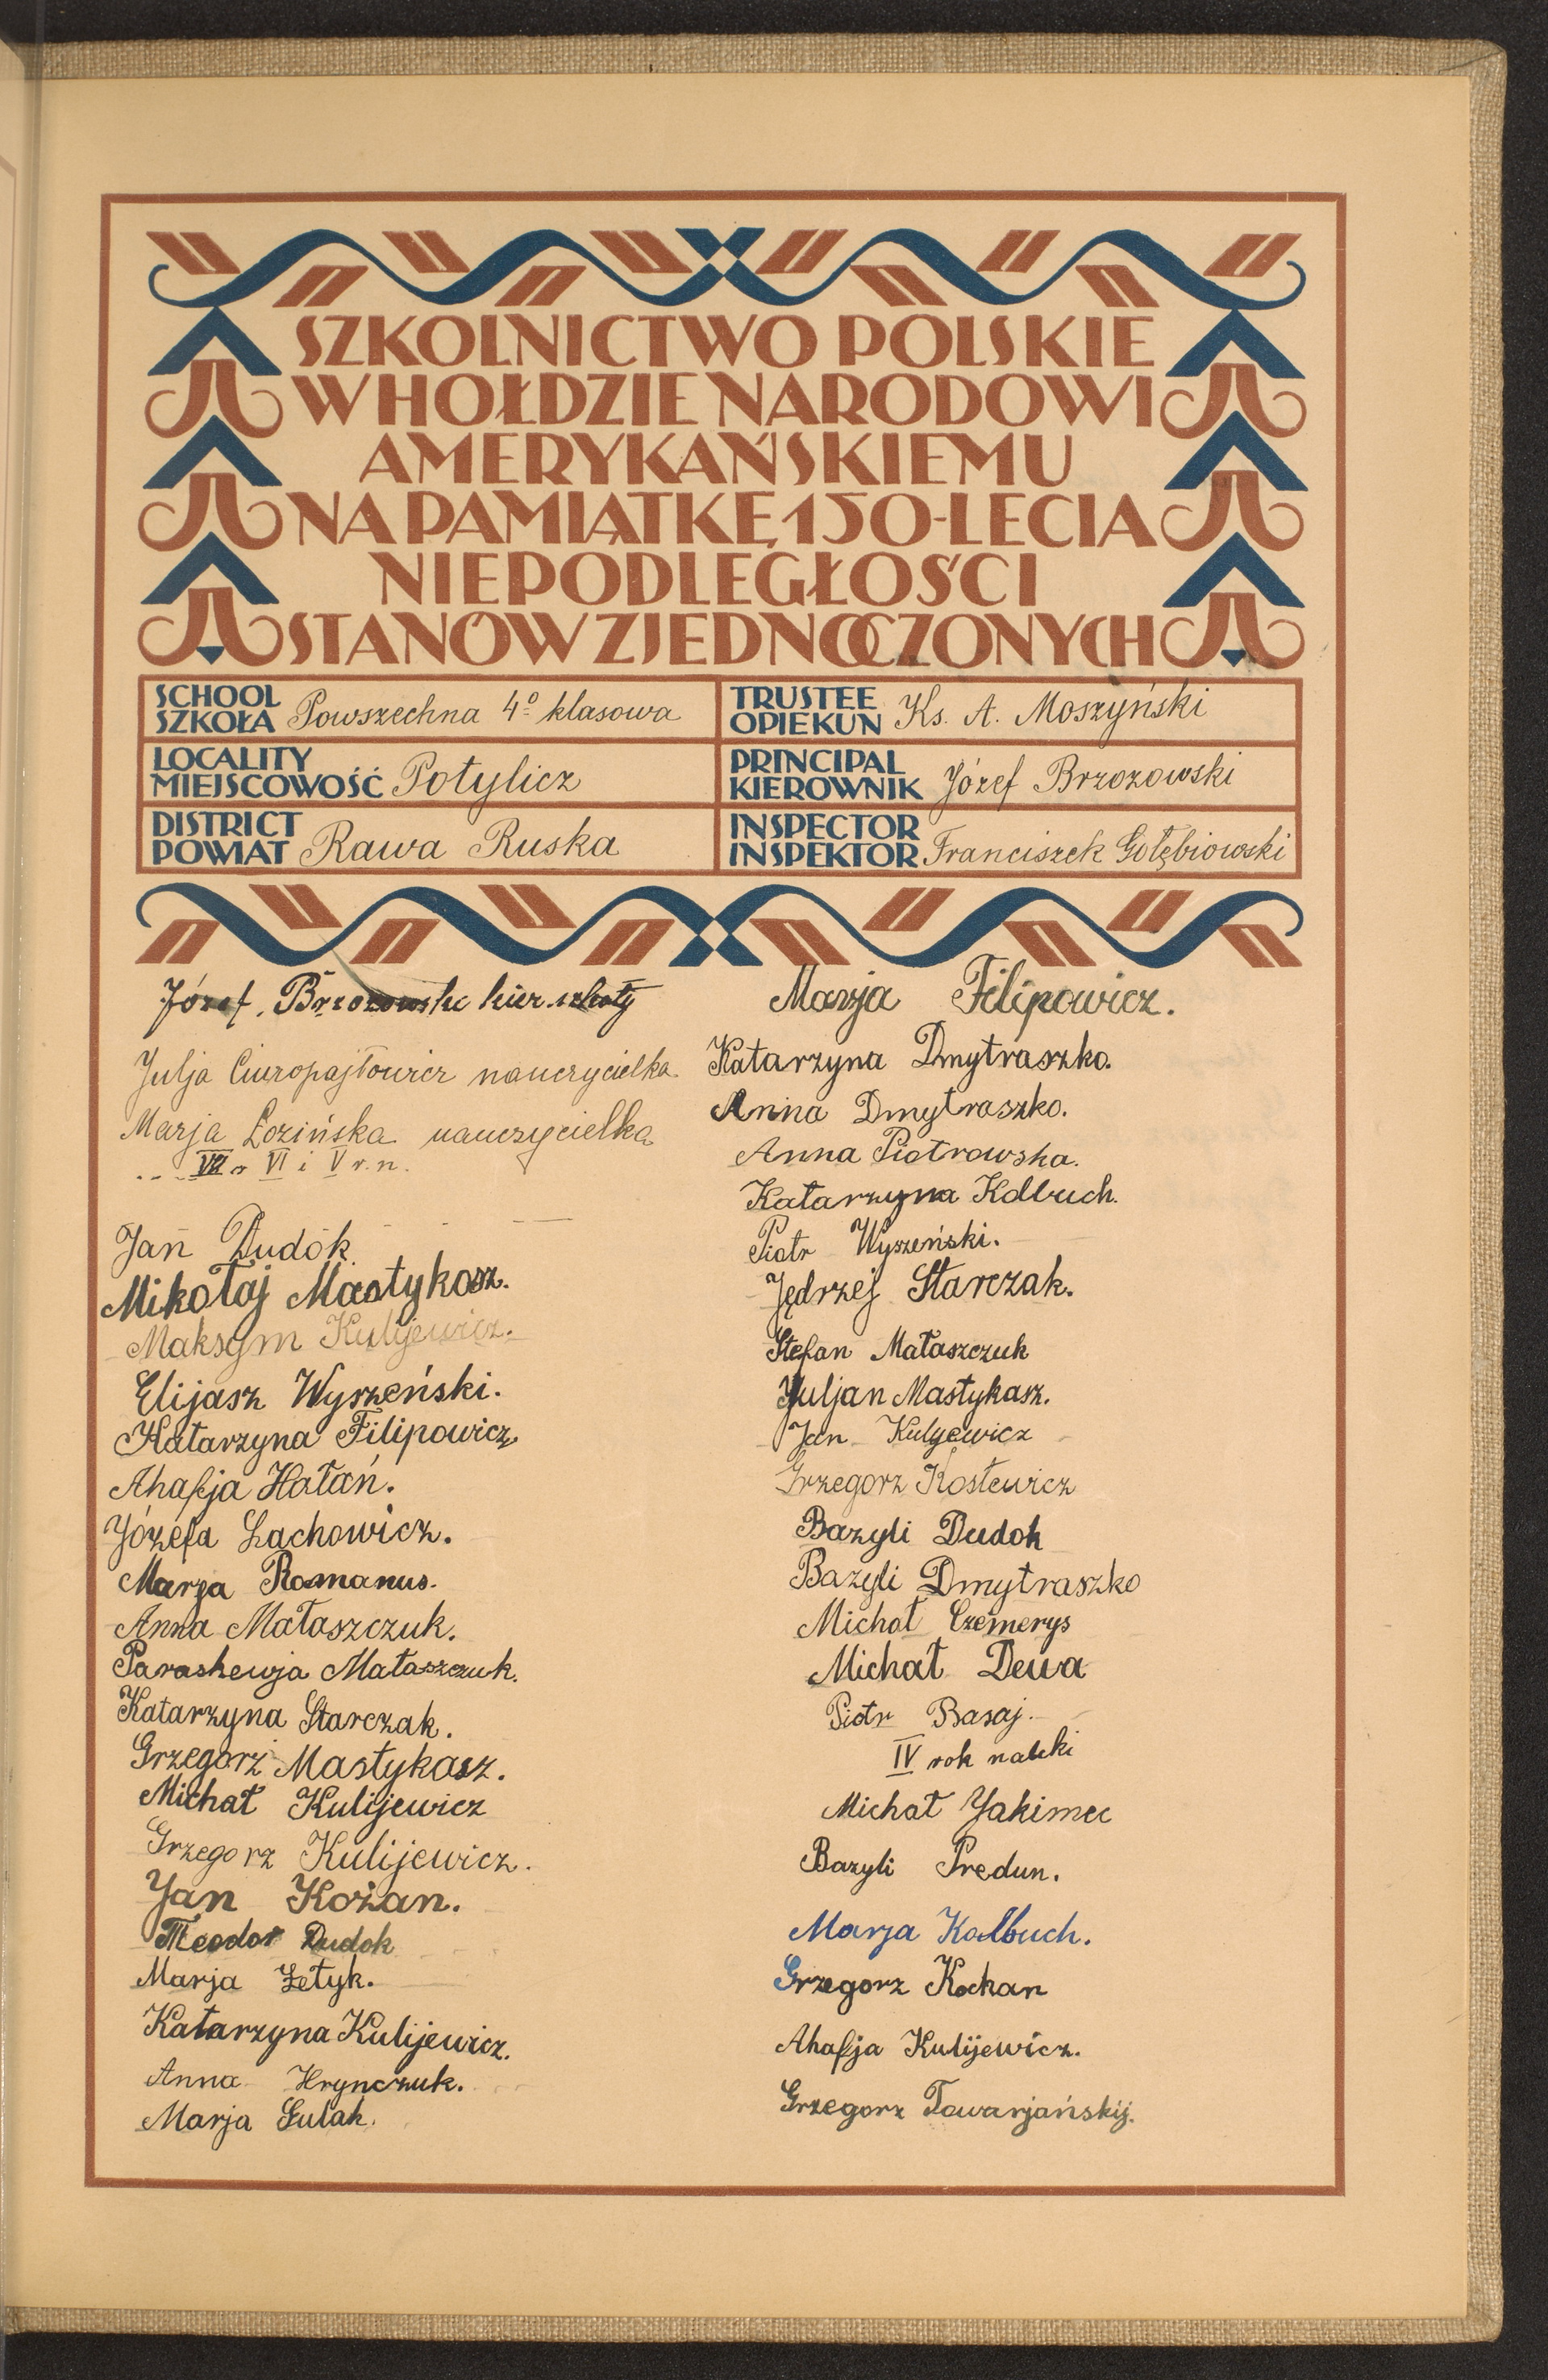 SZKOLNICTWO POLSKIE
W HOŁDZIE NARODOWI
AMERYKAŃSKIEMU
NA PAMIĄTKĘ 150-LECIA
NIEPODLEGŁOŚCI
STANÓW ZJEDNOCZONYCH
SCHOOL
SZKOŁA Powszechna 4º klasowa
LOCALITY
MIEJSCOWOŚĆ Potylicz
DISTRICT
POWIAT Rawa Ruska
TRUSTEE
OPIEKUN Ks. A. Moszyński
PRINCIPAL
KIEROWNIK Józef Brzozowski
INSPECTOR
INSPEKTOR Franciszek Gołębiowski
Józef Brzozowski kier. szkoły
Julja nauczycielka
Marja Łozińska nauczycielka
VII VI i V r. n.
Jan Dudok
Mikołaj Mastykasz.
Maksym Kulijewicz.
Elijasz Wyszeński.
Katarzyna Filipowicz
Ahafja Hałań.
Józefa Lachowicz.
Marja Romanus.
Anna Małaszczuk.
Paraskewja Małaszczuk.
Katarzyna Starczak.
Grzegorz Mastykasz.
Michał Kulijewicz
Grzegorz Kulijewicz.
Jan Kożan.
Teodor Dudok
Marja Łetyk.
Katarzyna Kulijewicz.
Anna Hrynczuk.
Marja Sulak.
Marja Filipowicz.
Katarzyna Dmytraszko.
Anna Dmytraszko.
Anna Piotrowska.
Katarzyna Kolbuch.
Piotr Wyszeński.
Jędrzej Starczak.
Stefan Małaszczuk
Juljan Mastykasz.
Jan Kulyewicz
Grzegorz Kostewicz
Bazyli Dudok
Bazyli Dmytraszko
Michał Czemerys
Michał Dewa
Piotr Basaj.
IV rok nauki
Michał Yakimec
Bazyli Predun.
Marja Kolbuch.
Grzegorz Kockan
Ahafja Kulijewicz.
Grzegorz Towarjańskij.